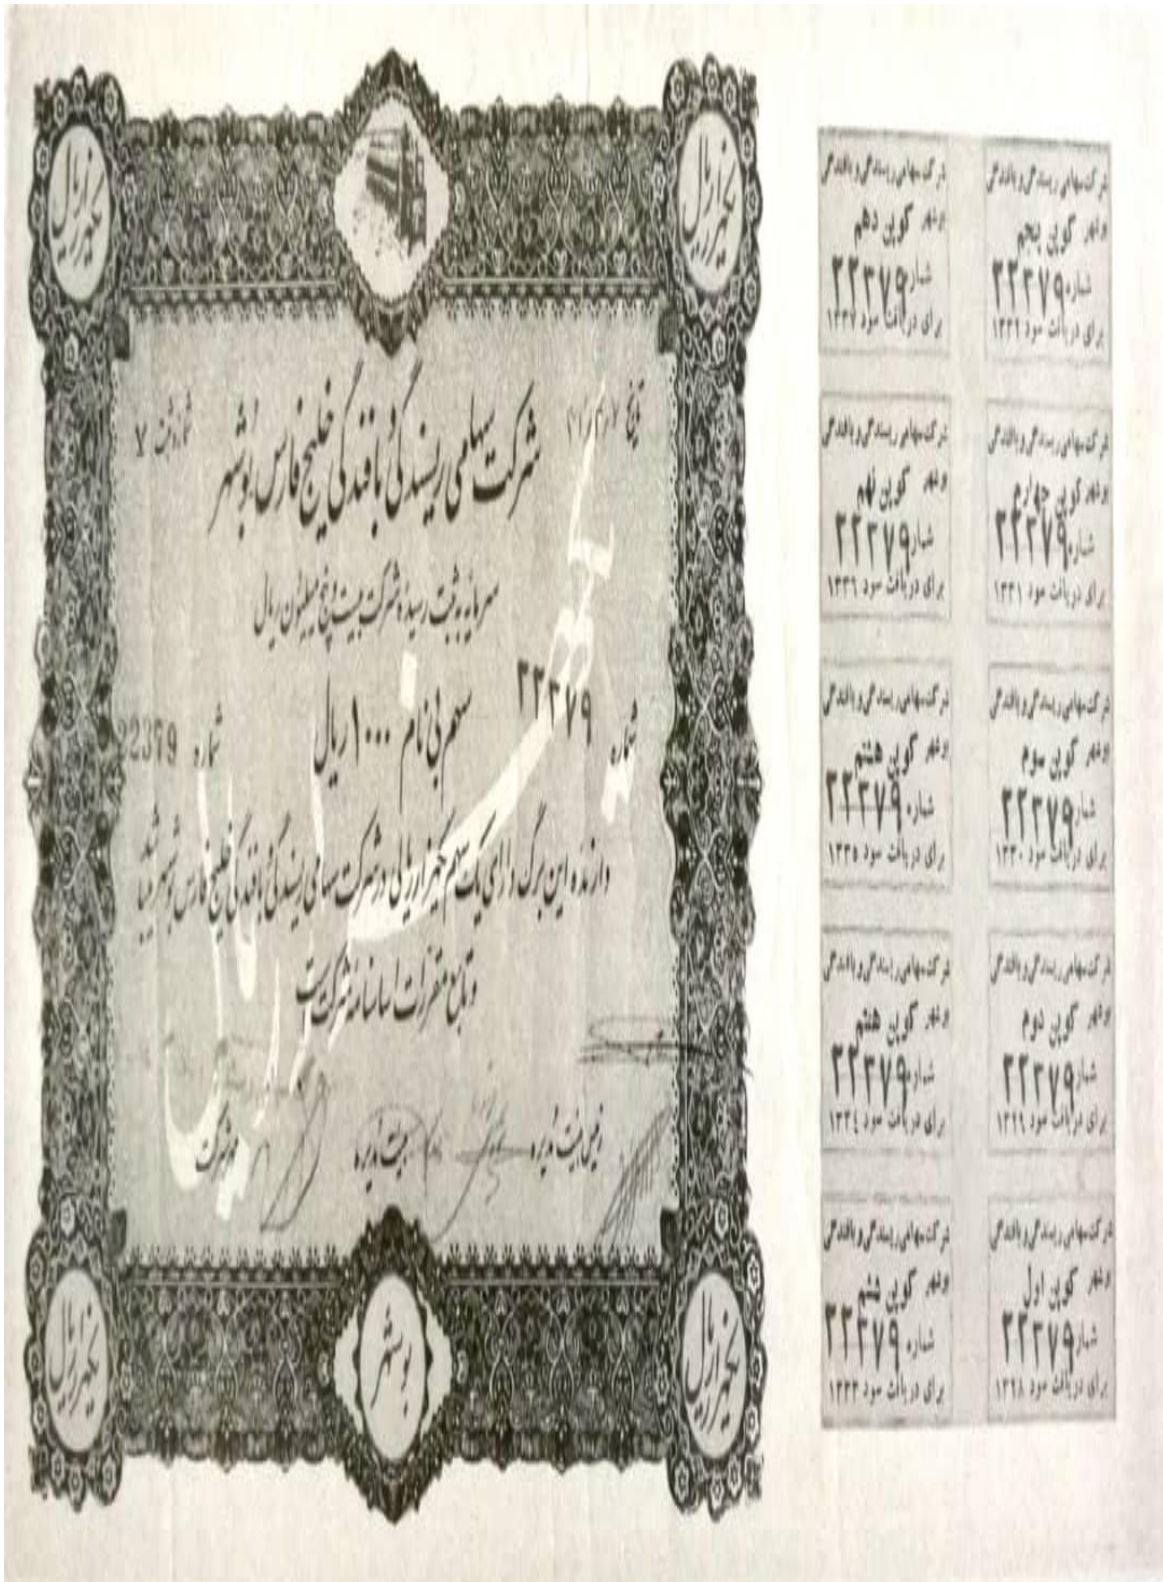 یکهزار ریال
یکهزار ریال
تاریخ
شماره ثبت ۷
شرکت سهامی ریسندگی و بافندگی خلیج فارس بوشهر
سرمایه به ثبت رسیده شرکت بیست و پنج میلیون ریال
سهم بی نام ۱۰۰۰ ریال
شماره ۲۲۳۷۹
شماره 22379
یکهزار ریال
دارنده این برگ دارای یک سهم یکهزار ریالی در شرکت سهامی ریسندگی و بافندگی خلیج فارس بوشهر میباشد
و تابع مقررات اساسنامه شرکت است
رئیس هیئت مدیره
هیئت مدیره
مهر شرکت
یکهزار ریال
بوشهر
یکهزار ریال
شرکت سهامی ریسندگی و بافندگی
بوشهر کوپن پنجم
شماره ۲۲۳۷۹
برای دریافت سود ۱۳۳۲
شرکت سهامی ریسندگی و بافندگی
بوشهر کوپن دهم
شماره ۲۲۳۷۹
برای دریافت سود ۱۳۳۷
شرکت سهامی ریسندگی و بافندگی
بوشهر کوپن چهارم
شماره ۲۲۳۷۹
برای دریافت سود ۱۳۳۱
شرکت سهامی ریسندگی و بافندگی
بوشهر کوپن نهم
شماره ۲۲۳۷۹
برای دریافت سود ۱۳۳۶
شرکت سهامی ریسندگی و بافندگی
بوشهر کوپن سوم
شماره ۲۲۳۷۹
برای دریافت سود ۱۳۳۰
شرکت سهامی ریسندگی و بافندگی
بوشهر کوپن هشتم
شماره ۲۲۳۷۹
برای دریافت سود ۱۳۳۵
شرکت سهامی ریسندگی و بافندگی
بوشهر کوپن دوم
شماره ۲۲۳۷۹
برای دریافت سود ۱۳۲۹
شرکت سهامی ریسندگی و بافندگی
بوشهر کوپن هفتم
شماره ۲۲۳۷۹
برای دریافت سود ۱۳۳۴
شرکت سهامی ریسندگی و بافندگی
بوشهر کوپن اول
شماره ۲۲۳۷۹
برای دریافت سود ۱۳۲۸
شرکت سهامی ریسندگی و بافندگی
بوشهر کوپن ششم
شماره ۲۲۳۷۹
برای دریافت سود ۱۳۳۳